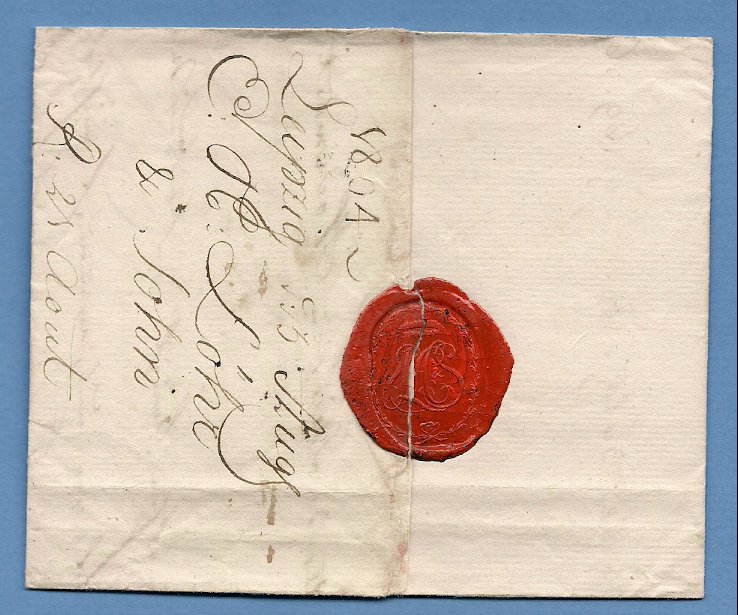 1804
Leipzig 13 Aug
C. H. Löhr
& Sohn
R. 21 Aout